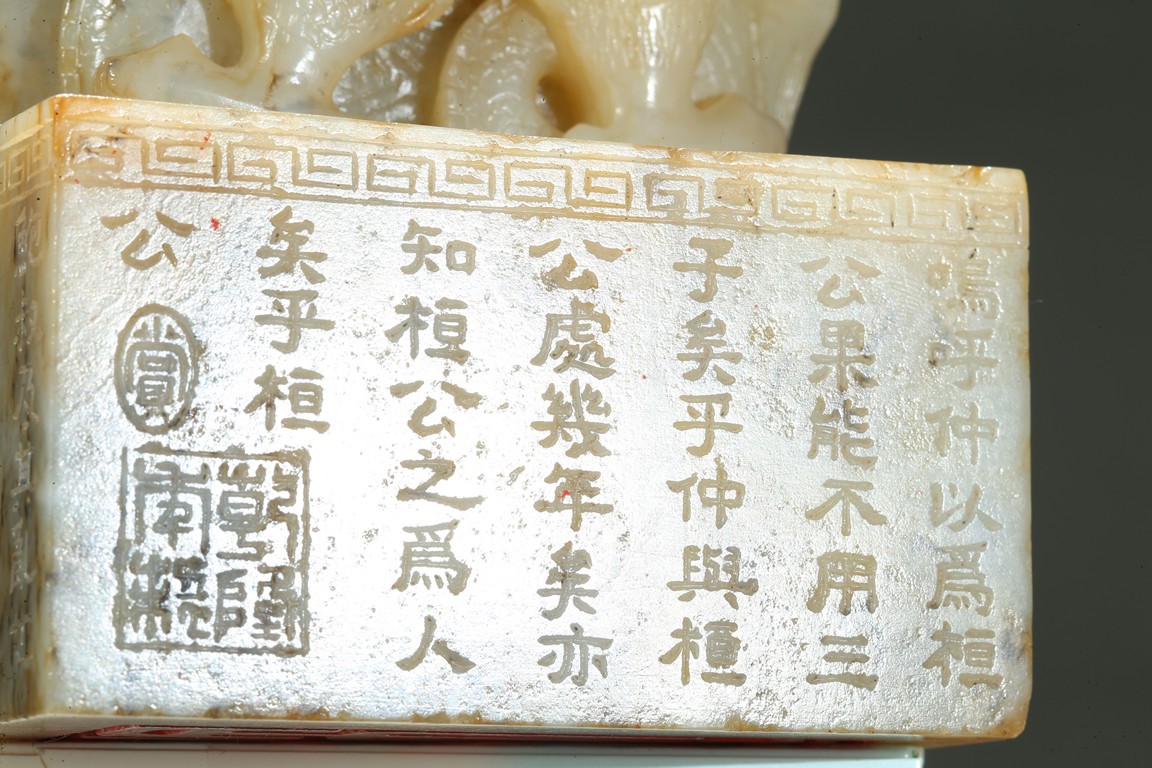 嗚呼仲以爲桓
公果能不用三
子矣乎仲與桓
公處幾年矣亦
知桓公之爲人
矣乎桓
公
賞
乾隆